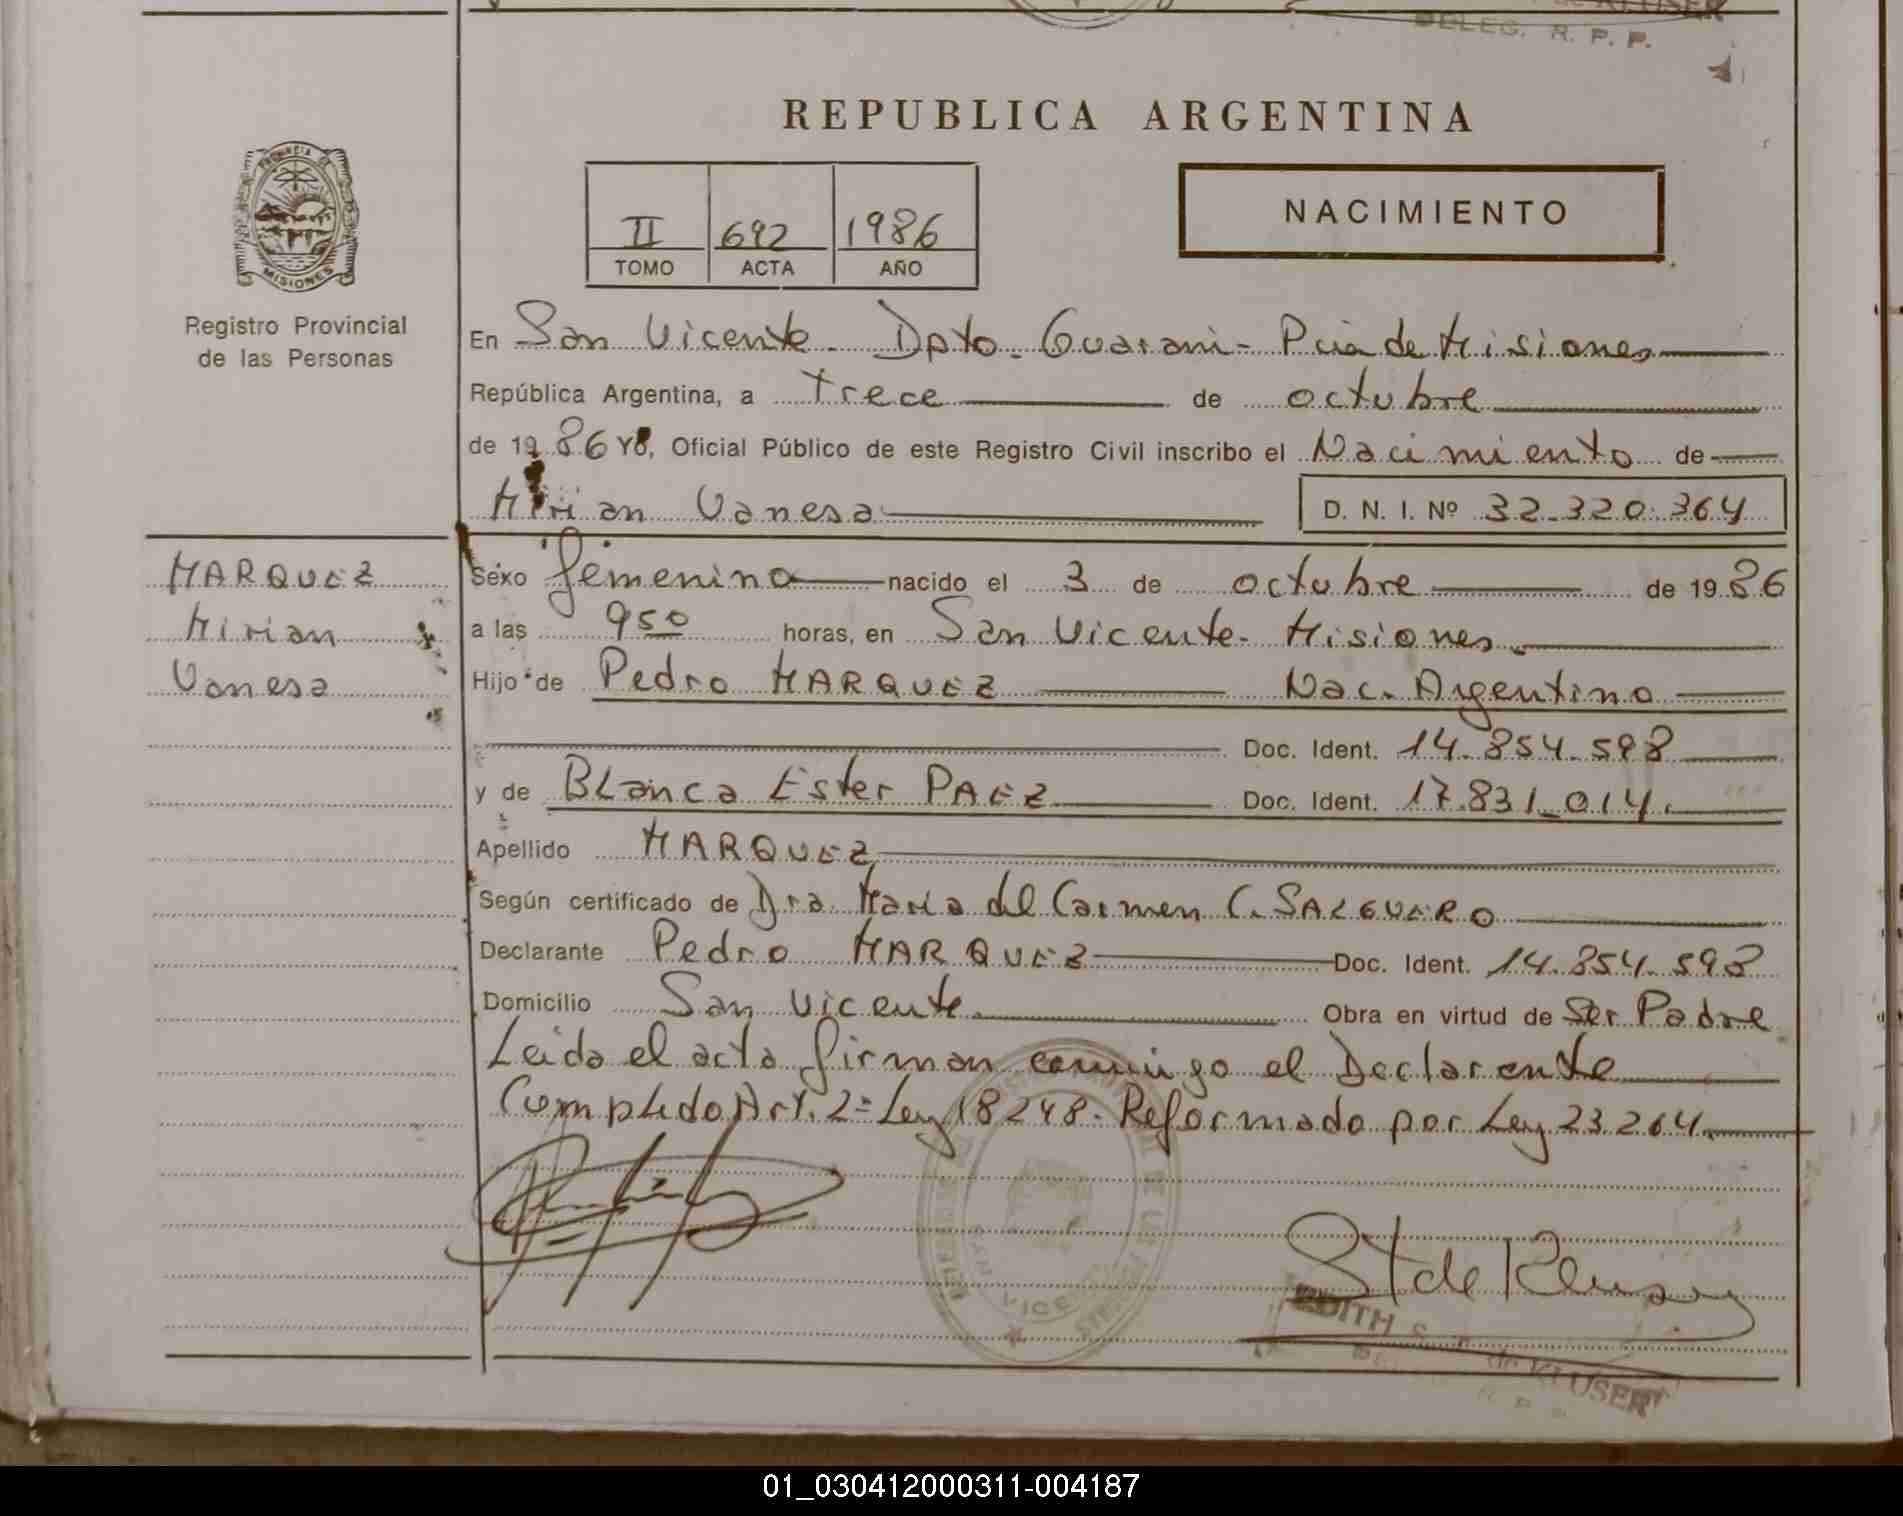 DELEG. R. P. P.
REPUBLICA ARGENTINA
PROVINCIA DE
MISIONES
Registro Provincial
de las Personas
II 692 1986
TOMO ACTA AÑO
NACIMIENTO
En San Vicente - Dpto. Guarani - Pcia de Misiones
República Argentina, a trece de octubre
de 1986 Yo, Oficial Público de este Registro Civil inscribo el Nacimiento de
Mirian Vanesa D. N. I. Nº 32.320.364
MARQUEZ
Mirian
Vanesa
Sexo femenino nacido el 3 de octubre de 1986
a las 9 50 horas, en San Vicente - Misiones
Hijo de Pedro MARQUEZ Nac. Argentino
Doc. Ident. 14.854.598
y de Blanca Ester PAEZ Doc. Ident. 17.831.014.
Apellido MARQUEZ
Según certificado de Dra. Maria del Carmen C. SALGUERO
Declarante Pedro MARQUEZ Doc. Ident. 14.854.598
Domicilio San Vicente Obra en virtud de Ser Padre
Leida el acta firman conmigo el Declarante
Cumplido Art. 2= Ley 18248 - Reformado por Ley 23.264.
St de Kluser
EDITH S. de KLUSER
R. P. P.
01_030412000311-004187